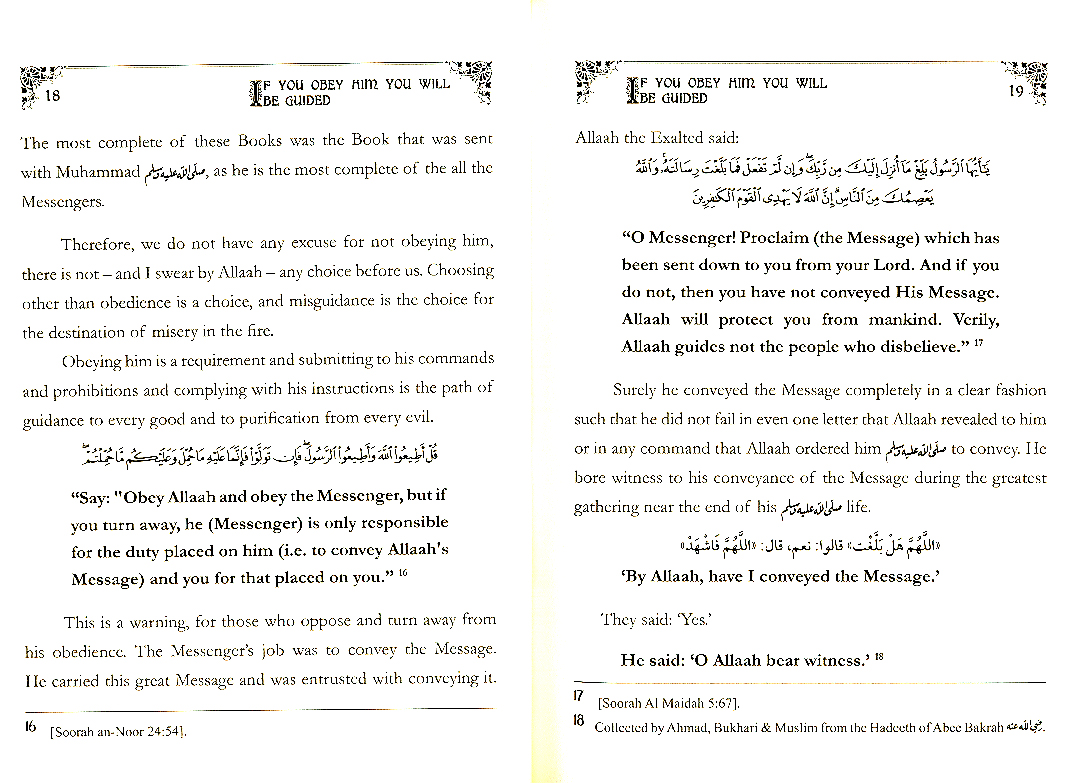 18
IF YOU OBEY HIM YOU WILL
BE GUIDED
The most complete of these Books was the Book that was sent
with Muhammad ﷺ, as he is the most complete of the all the
Messengers.
Therefore, we do not have any excuse for not obeying him,
there is not – and I swear by Allaah – any choice before us. Choosing
other than obedience is a choice, and misguidance is the choice for
the destination of misery in the fire.
Obeying him is a requirement and submitting to his commands
and prohibitions and complying with his instructions is the path of
guidance to every good and to purification from every evil.
قُلْ أَطِيعُوا۟ ٱللَّهَ وَأَطِيعُوا۟ ٱلرَّسُولَ ۖ فَإِن تَوَلَّوْا۟ فَإِنَّمَا عَلَيْهِ مَا حُمِّلَ وَعَلَيْكُم مَّا حُمِّلْتُمْ ۖ
“Say: "Obey Allaah and obey the Messenger, but if
you turn away, he (Messenger) is only responsible
for the duty placed on him (i.e. to convey Allaah's
Message) and you for that placed on you.” 16
This is a warning, for those who oppose and turn away from
his obedience. The Messenger’s job was to convey the Message.
He carried this great Message and was entrusted with conveying it.
16 [Soorah an-Noor 24:54].
IF YOU OBEY HIM YOU WILL
BE GUIDED
19
Allaah the Exalted said:
يَـٰٓأَيُّهَا ٱلرَّسُولُ بَلِّغْ مَآ أُنزِلَ إِلَيْكَ مِن رَّبِّكَ ۖ وَإِن لَّمْ تَفْعَلْ فَمَا بَلَّغْتَ رِسَالَتَهُۥ ۚ وَٱللَّهُ
يَعْصِمُكَ مِنَ ٱلنَّاسِ ۗ إِنَّ ٱللَّهَ لَا يَهْدِى ٱلْقَوْمَ ٱلْكَـٰفِرِينَ
“O Messenger! Proclaim (the Message) which has
been sent down to you from your Lord. And if you
do not, then you have not conveyed His Message.
Allaah will protect you from mankind. Verily,
Allaah guides not the people who disbelieve.” 17
Surely he conveyed the Message completely in a clear fashion
such that he did not fail in even one letter that Allaah revealed to him
or in any command that Allaah ordered him ﷺ to convey. He
bore witness to his conveyance of the Message during the greatest
gathering near the end of his ﷺ life.
«اللَّهُمَّ هَلْ بَلَّغْت» قالوا: نعم، قال: «اللَّهُمَّ فَاشْهَدْ»
‘By Allaah, have I conveyed the Message.’
They said: ‘Yes.’
He said: ‘O Allaah bear witness.’ 18
17 [Soorah Al Maidah 5:67].
18 Collected by Ahmad, Bukhari & Muslim from the Hadeeth of Abee Bakrah رضي الله عنه.